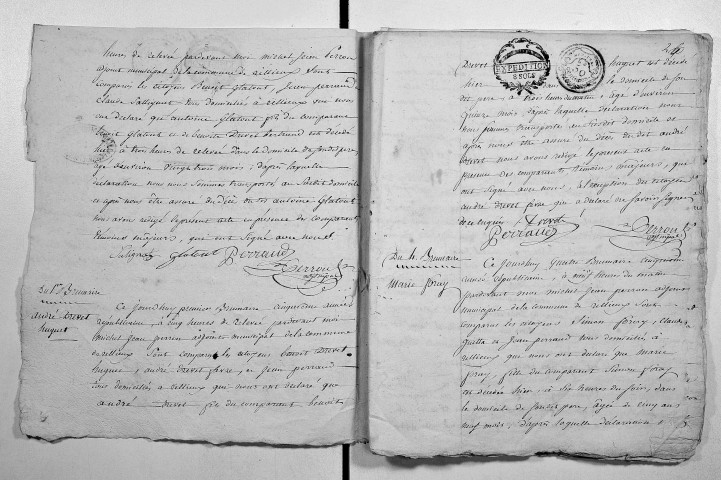 heures de relevée pardevant moi michel Jean Perron
adjoint municipal de la commune de rellieux Sont
comparus les citoyens Benoit Glatout, Jean perraud
Claude Sallignat tous domiciliés a rellieux qui nous
ont declaré que antoine Glatout fils du comparant
benoit Glatout et de benoite Drevet est decedé
hier a trois heures de relevée dans le domicile du
age d'environ vingt trois mois : d'après laquelle
declaration nous nous Sommes transporté au Susdit domicile
et après nous être assuré du décès du dit antoine Glatout
nous avons rédigé le présent acte en présence des comparants
témoins majeurs, qui ont Signé avec nous
Salignat Glatout Perraud
Perron adjoint
Du 1er Brumaire
André Drevet
huguet
Ce jourd'huy premier Brumaire cinquieme année
républicaine, a cinq heures de relevée pardevant moi
Michel Jean perron adjoint municipal de la commune
de rellieux Sont comparus les citoyens benoit Drevet
huguet, andré drevet frere, et Jean perraud
tous domiciliés a rellieux qui nous ont declaré que
andré Drevet fils du comparant benoit
26
Drevet huguet est décédé
hier dans le domicile de son
dit pere, a trois heures du matin, agé d'environ
quatre mois, d'après laquelle déclaration nous
nous sommes transporté au Susdit domicile et
après nous être assuré du décès du dit andré
Drevet nous avons rédigé le présent acte en
presence des comparants témoins majeurs, qui
ont Signé avec nous, a l'exception du citoyen
andré drevet frere qui a declaré ne Savoir Signer
de ce enquis Drevet
Perraud Perron
adjoint
EXPEDITION
8 SOLS
Du 4 Brumaire
Marie foray
Ce jourd'huy quatre Brumaire cinquieme
année républicaine, a neuf heures du matin
pardevant moi michel Jean perron adjoint
municipal de la commune de rellieux Sont
comparus les citoyens Simon foray, claude
et Jean perraud tous domiciliés a
rellieux qui nous ont declaré que Marie
foray, fille du comparant Simon foray
est décédée hier, a Six heures du Soir, dans
le domicile de Son dit pere, agée de cinq ans
neuf mois, d'après laquelle declaration